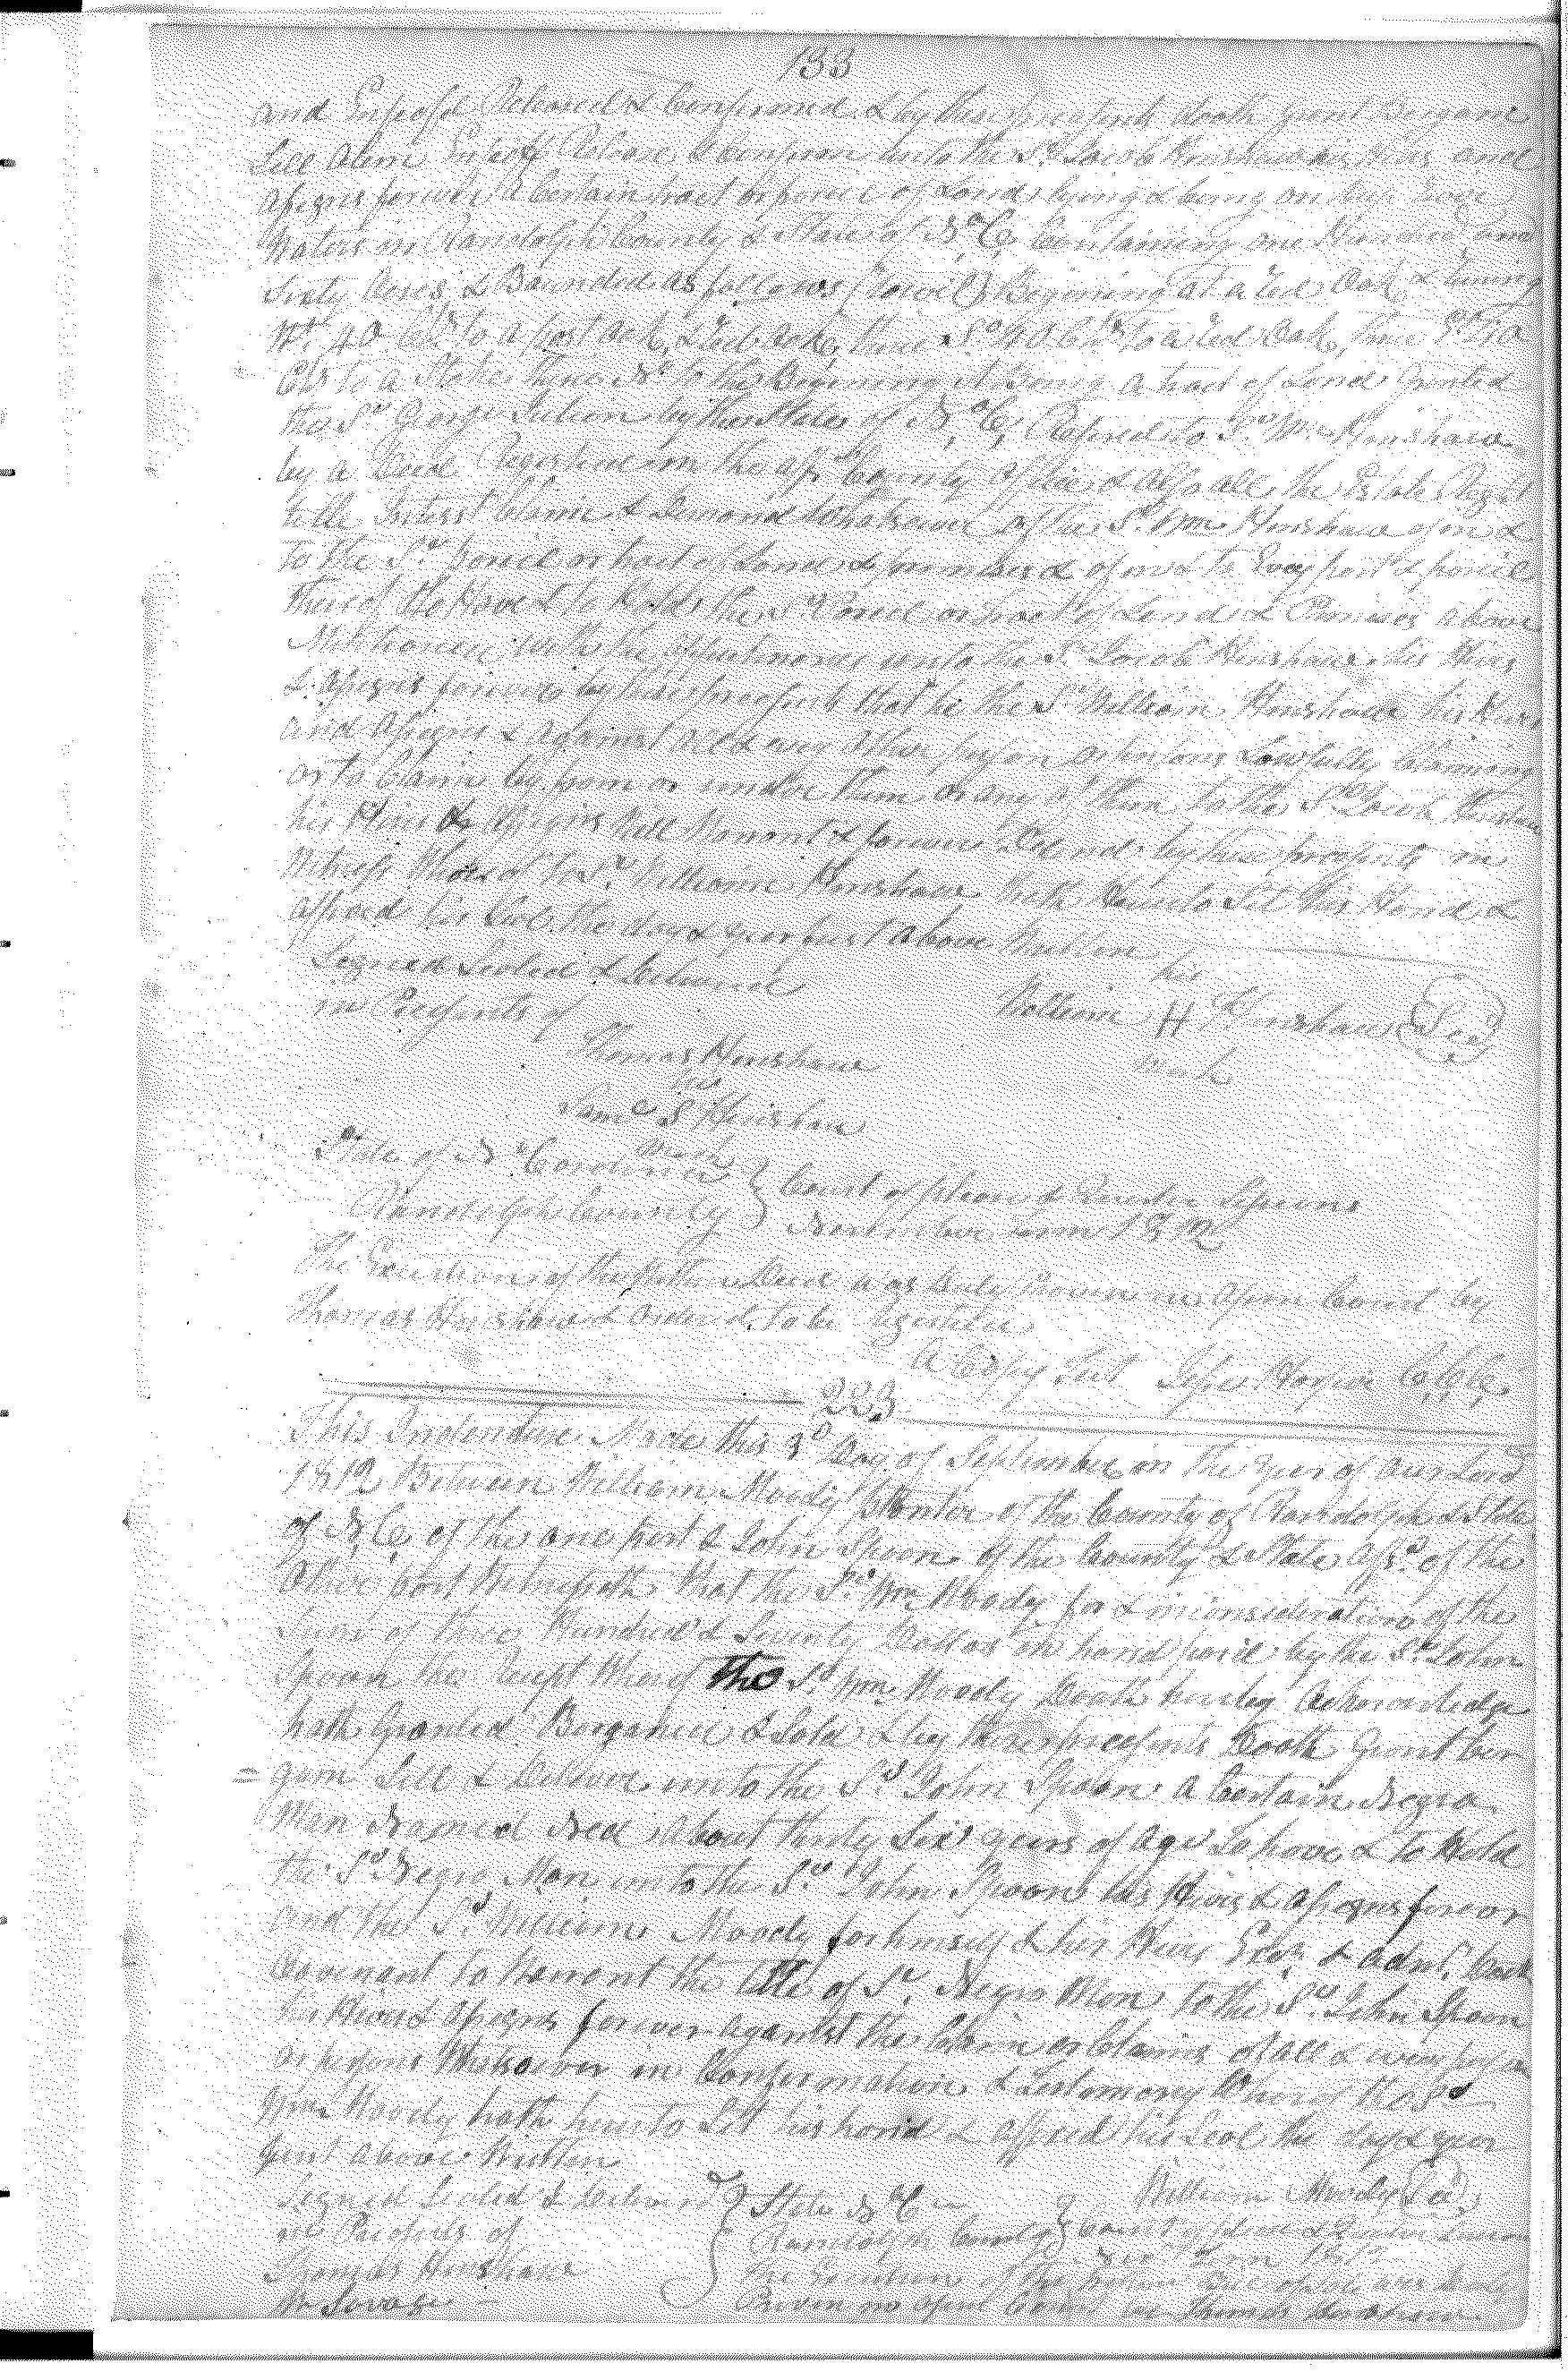 133
and Enfeofd Released & Confirmed & by these presents doth grant Bargain
Sell Alien Enfeoff Release & confirm unto the Sd. Jacob Hinshaw his Heirs and
Assigns forever A Certain tract or parcel of Land lying & being on
Waters in Randolph County & State of No. Ca. Containing one Hundred and
Sixty Acres & Bounded as follows (towit) Begining at a Red Oak & runing
Wt. 40 Chs to a post oak & Red oak, thence So. 40 Chs to a Red Oak, thence Et. 40
Chs to a Stake thence No. to the Begining it being a tract of Land Granted
the Sd. George Julien by the State of No. Ca. to Sd. Wm. Hinshaw
by a Deed Registered in the afsd. County office & Also all the Estate Right
title Interst Claim & Demand Whatsoever of the Sd. Wm Hinshaw of in &
to the Sd. parcel or tract of Land & premises & of in & to Every part & parcel
thereof To Have & to Hold the Sd. Parcel or Tract of Land & Premises above
Mentioned with the appurtenances unto the Sd. Jacob Hinshaw his Heirs
& Assigns forever by these presents that he the Sd. William Hinshaw his Heirs
and Assigns & against all & every other person or persons Lawfully Claiming
or to Claim by from or under them or any of them to the Sd. Jacob Hinshaw
his Heirs & Assigns Will Warrant & forever Defend by these presents in
Witness Whereof the Sd. William Hinshaw hath hereunto Set his Hand &
affixed his Seal the day & year first above Written
Signed Sealed & Delivered his
in Presents of William H Hinshaw (Seal)
Thomas Hinshaw mark
his
S Hinshaw
mark
State of No. Carolina } Court of pleas & Quarter Sessions
Randolph County } November term 1812
The Execution of the Within Deed was duly Proven in open Court by
Thomas Hinshaw & ordered to be Registered
A Copy Test Jesse Harper C.C.C.
223
This Indenture Made this 3d Day of September in the year of our Lord
1812 Between William Moody Planter of the County of Randolph & State
of N. C. of the one part & John Spoon of the County & State afsd. of the
Other part Witnesseth that the Sd. Wm Moody for & in consideration of the
Sum of three Hundred & Seventy Dollars in hand paid by the Sd. John
Spoon the receipt Whereof the Sd. Wm Moody Doath hereby acknowledge
hath Granted Bargained & Sold & by these presents Doath Grant bar
= gain Sell & Deliver unto the Sd. John Spoon a Certain Negro
Man Named Ned about thirty Six years of age To have & to Hold
the Sd. Negro Man unto the Sd. John Spoon his Heirs & assigns forever
and the Sd. William Moody for himself & his Heirs Exrs. & adms. Doath
Covenant to Warrant the title of Sd. Negro Man to the Sd. John Spoon
his Heirs & assigns forever against the Claim or Claims of all & every person
or persons Whatsoever in Confirmation & Testimony Whereof the Sd
Wm Moody hath hereunto Set his hand & affixed his Seal the day & year
first above Written
Signed Sealed & Delivered William Moody (Seal)
in Presents of
Thomas Hinshaw
Wm Savage
State No. Ca.
Randolph County } Court of pleas & Quarter Sessions
Nov. Term 1812
The Execution of the within was duly
Proven in open Court by Thomas Hinshaw